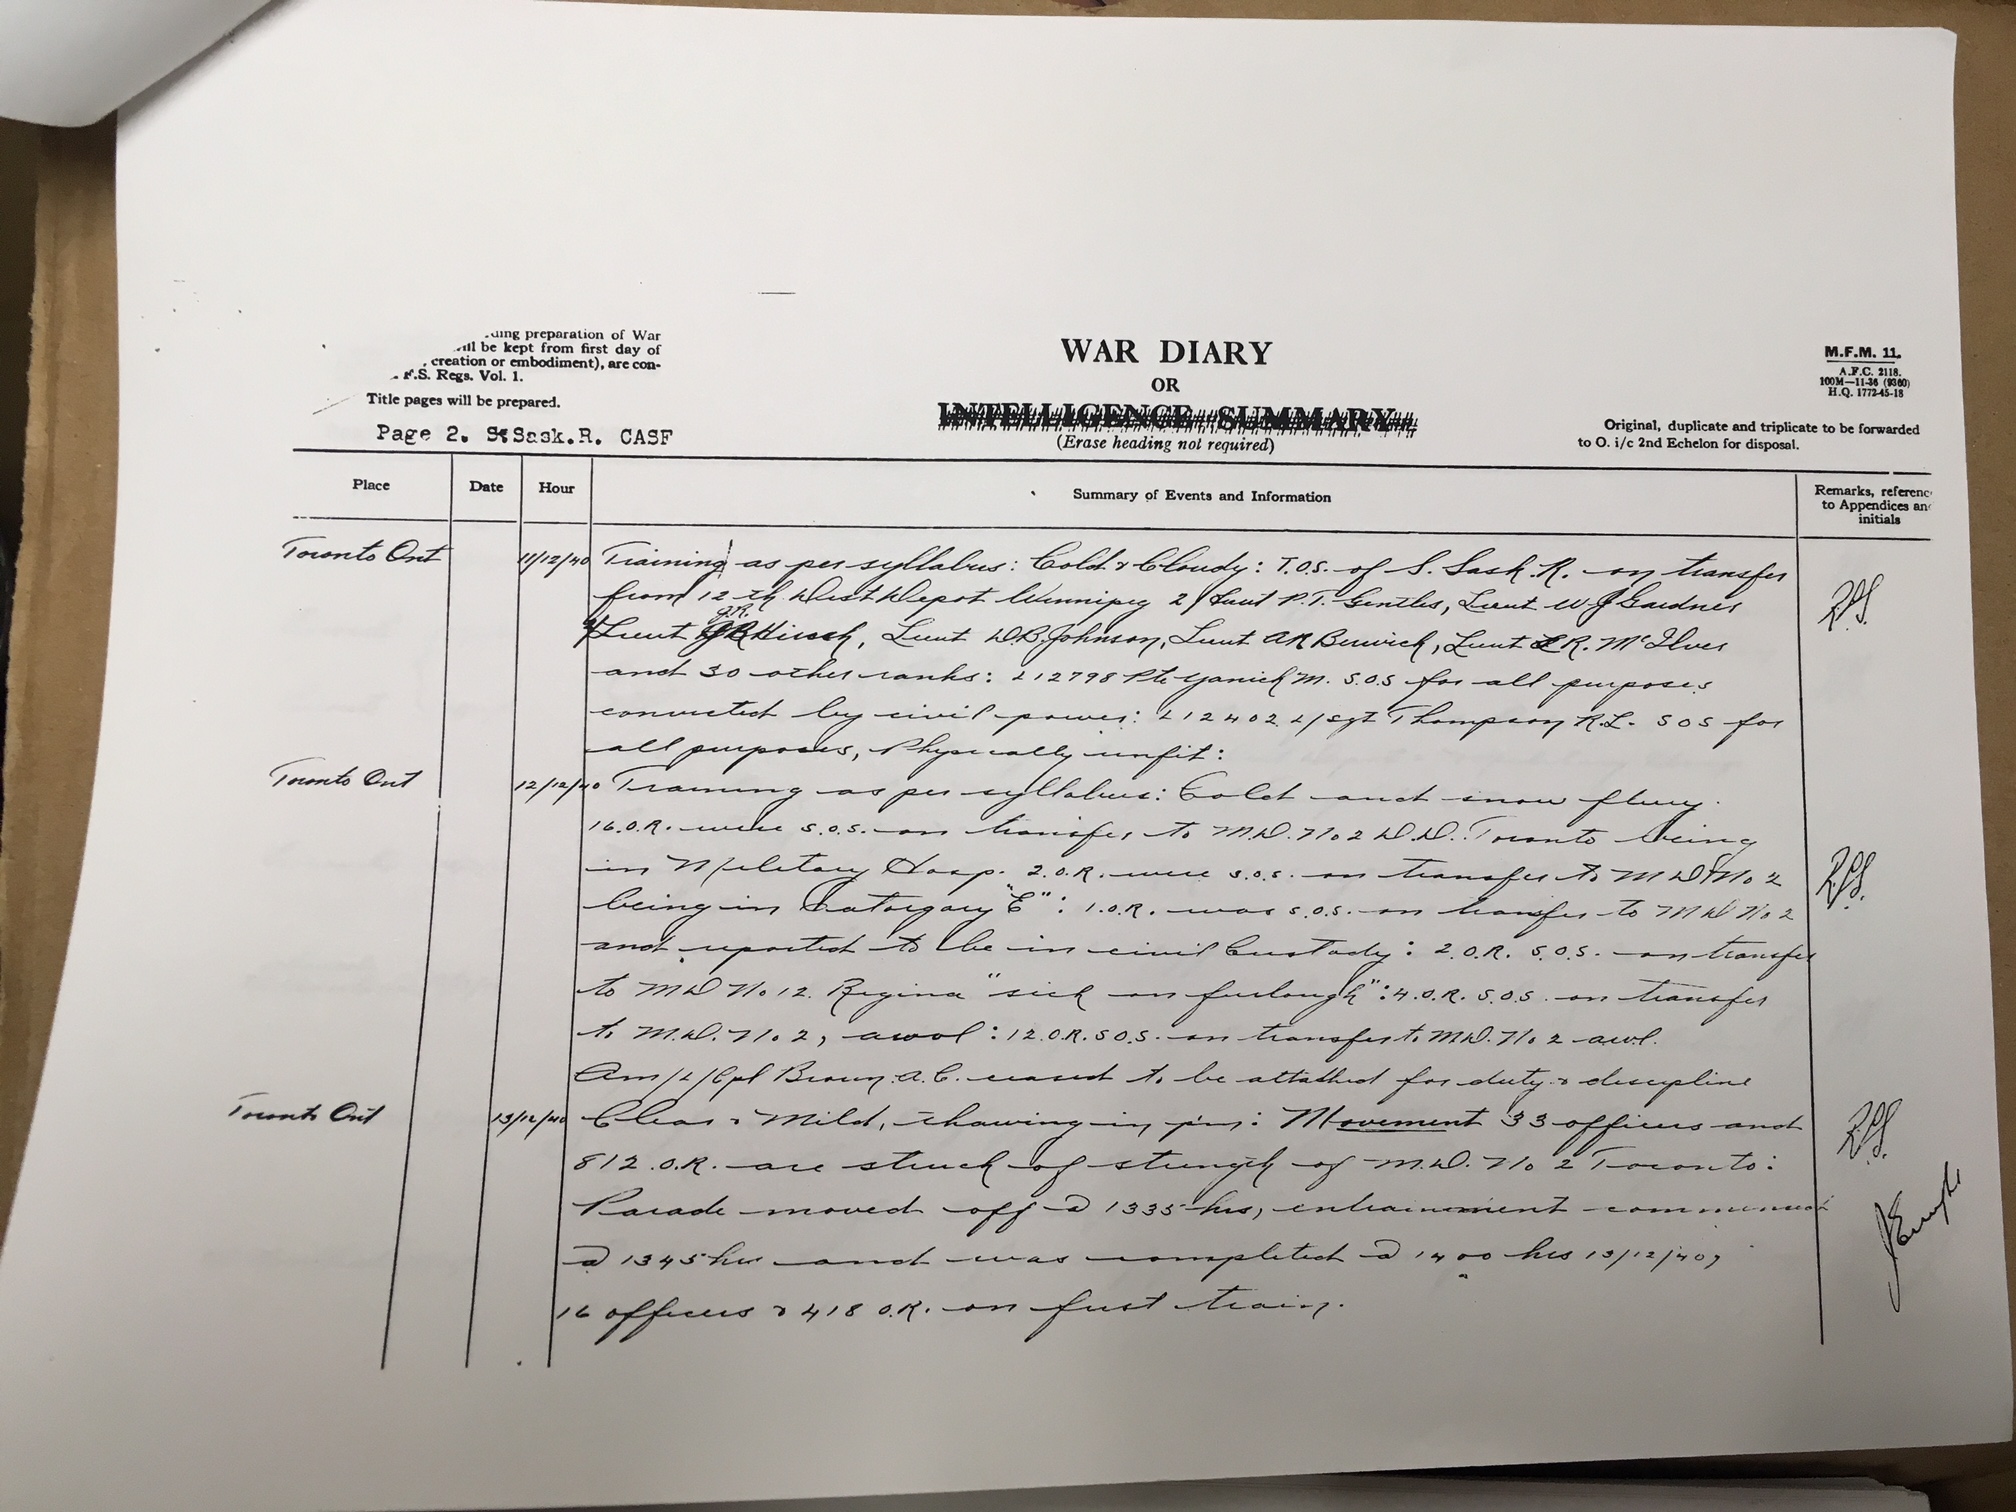 ding preparation of War
ill be kept from first day of
creation or embodiment), are con-
F.S. Regs. Vol. 1.
Title pages will be prepared.
Page 2. S.Sask.R. CASF
WAR DIARY
OR
INTELLIGENCE SUMMARY
(Erase heading not required)
M.F.M. 11.
A.F.C. 2118.
100M—11-36 (9360)
H.Q. 1772-45-18
Original, duplicate and triplicate to be forwarded
to O. i/c 2nd Echelon for disposal.
Place Date Hour Summary of Events and Information Remarks, referenc
to Appendices an
initials
Toronto Ont 11/12/40 Training as per syllabus: Cold & Cloudy: T.O.S. of S. Sask. R. on transfer
from 12th Dist Depot Winnipeg 2/Lieut P.T. Gentles, Lieut W J Gardner
J.R.
2/Lieut Hirsch, Lieut D.B. Johnson, Lieut A R Berwick, Lieut R. McIlver
and 30 other ranks: L12798 Pte Yanick M. S.O.S for all purposes
convicted by civil power: L12402 L/Sgt Thompson R.L. SOS for
all purposes, Physically unfit:
Toronto Ont 12/12/40 Training as per syllabus: Cold and snow flury.
16.O.R. were S.O.S. on transfer to M.D. No 2 D.D. Toronto being
in Military Hosp. 2.O.R. were S.O.S. on transfer to M D No 2
being in Catorgary "E": 1.O.R. was S.O.S. on transfer to M D No 2
and reported to be in civil Custody: 2.O.R. S.O.S. on transfer
to M D No 12. Regina "sick on furlough": 4.O.R. S.O.S. on transfer
to M.D. No. 2, awol: 12.O.R. SOS. on transfer to M.D. No 2 awl.
Am/L/Cpl Brown. A.C. ceased to be attached for duty & discipline
Toronto Ont 13/12/40 Clear & Mild, thawing in p.m: Movement 33 officers and
812.O.R. are struck of strength of M.D. No 2 Toronto:
Parade moved off @ 1335 hrs, entrainment commenced
@ 1345 hrs and was completed @ 1400 hrs 13/12/40,
16 officers & 418 O.R. on first train.